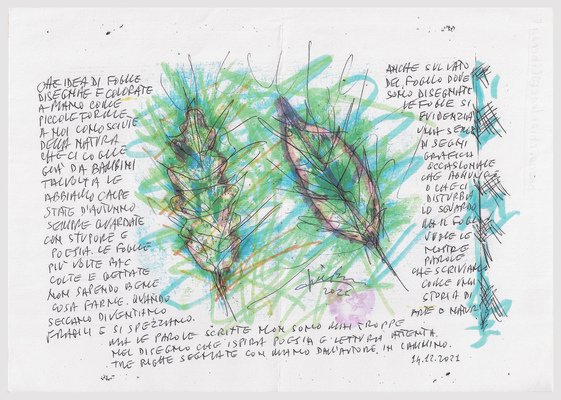 CHE IDEA DI FOGLIE
DISEGNATE E COLORATE
A MANO COME
PICCOLE FORME
A NOI CONOSCIUTE
DELLA NATURA
CHE CI COGLIE
GIÀ DA BAMBINI
TALVOLTA LE
ABBIAMO CALPE
STATE D'AUTUNNO
SEMPRE GUARDATE
CON STUPORE E
POESIA. LE FOGLIE
PIÙ VOLTE RAC
COLTE E GETTATE
NON SAPENDO BENE
COSA FARNE. QUANDO
SECCANO DIVENTANO
FRAGILI E SI SPEZZANO.
ANCHE SUL LATO
DEL FOGLIO DOVE
SONO DISEGNATE
LE FOGLIE SI
EVIDENZIA
UNA SERIE
DI SEGNI
GRAFICI
OCCASIONALE
CHE
O CHE CI
DISTURBA
LO SGUARDO
MA IL FOGLIO
VUOLE LE
NOSTRE
PAROLE
CHE SCRIVIAMO
COME UNA
STORIA DI
ARTE O NATURA
2021
MA LE PAROLE SCRITTE NON SONO MAI TROPPE
NEL DISEGNO CHE ISPIRA POESIA E LETTURA ATTENTA.
TRE RIGHE SEGNATE CON MANO DALL'AUTORE, IN CAMMINO.
14.12.2021